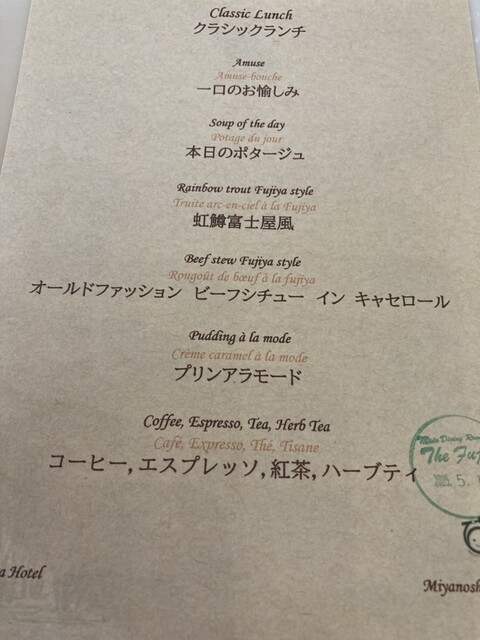 Classic Lunch
クラシックランチ
Amuse
Amuse-bouche
一口のお愉しみ
Soup of the day
Potage du jour
本日のポタージュ
Rainbow trout Fujiya style
Truite arc-en-ciel à la Fujiya
虹鱒富士屋風
Beef stew Fujiya style
Rougoût de bœuf à la fujiya
オールドファッション ビーフシチュー イン キャセロール
Pudding à la mode
Crème caramel à la mode
プリンアラモード
Coffee, Espresso, Tea, Herb Tea
Café, Expresso, Thé, Tisane
コーヒー, エスプレッソ, 紅茶, ハーブティ
Main Dining Room
The Fuj
5.
a Hotel
Miyanosh